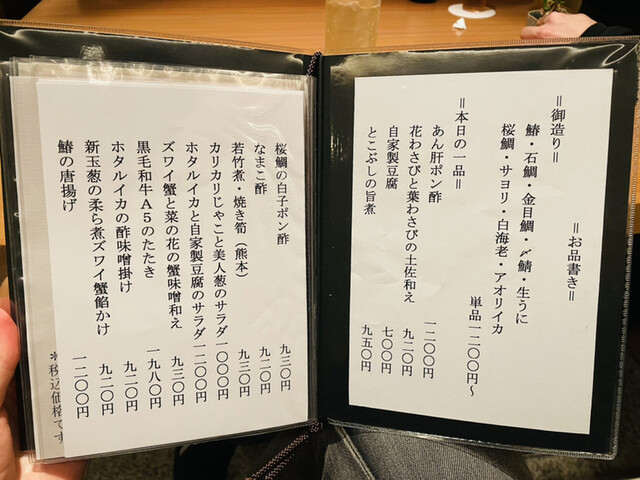 ＝お品書き＝
＝御造り＝
鰆・石鯛・金目鯛・〆鯖・生うに
桜鯛・サヨリ・白海老・アオリイカ
単品一二〇〇円～
＝本日の一品＝
あん肝ポン酢 一二〇〇円
花わさびと葉わさびの土佐和え 九二〇円
自家製豆腐 七〇〇円
とこぶしの旨煮 九五〇円
桜鯛の白子ポン酢 九三〇円
なまこ酢 九二〇円
若竹煮・焼き筍（熊本） 九三〇円
カリカリじゃこと美人葱のサラダ 一〇〇〇円
ホタルイカと自家製豆腐のサラダ 一二〇〇円
ズワイ蟹と菜の花の蟹味噌和え 九三〇円
黒毛和牛Ａ５のたたき 一九八〇円
ホタルイカの酢味噌掛け 九二〇円
新玉葱の柔ら煮ズワイ蟹餡かけ 九二〇円
鰆の唐揚げ 一二〇〇円
＊税込価格です